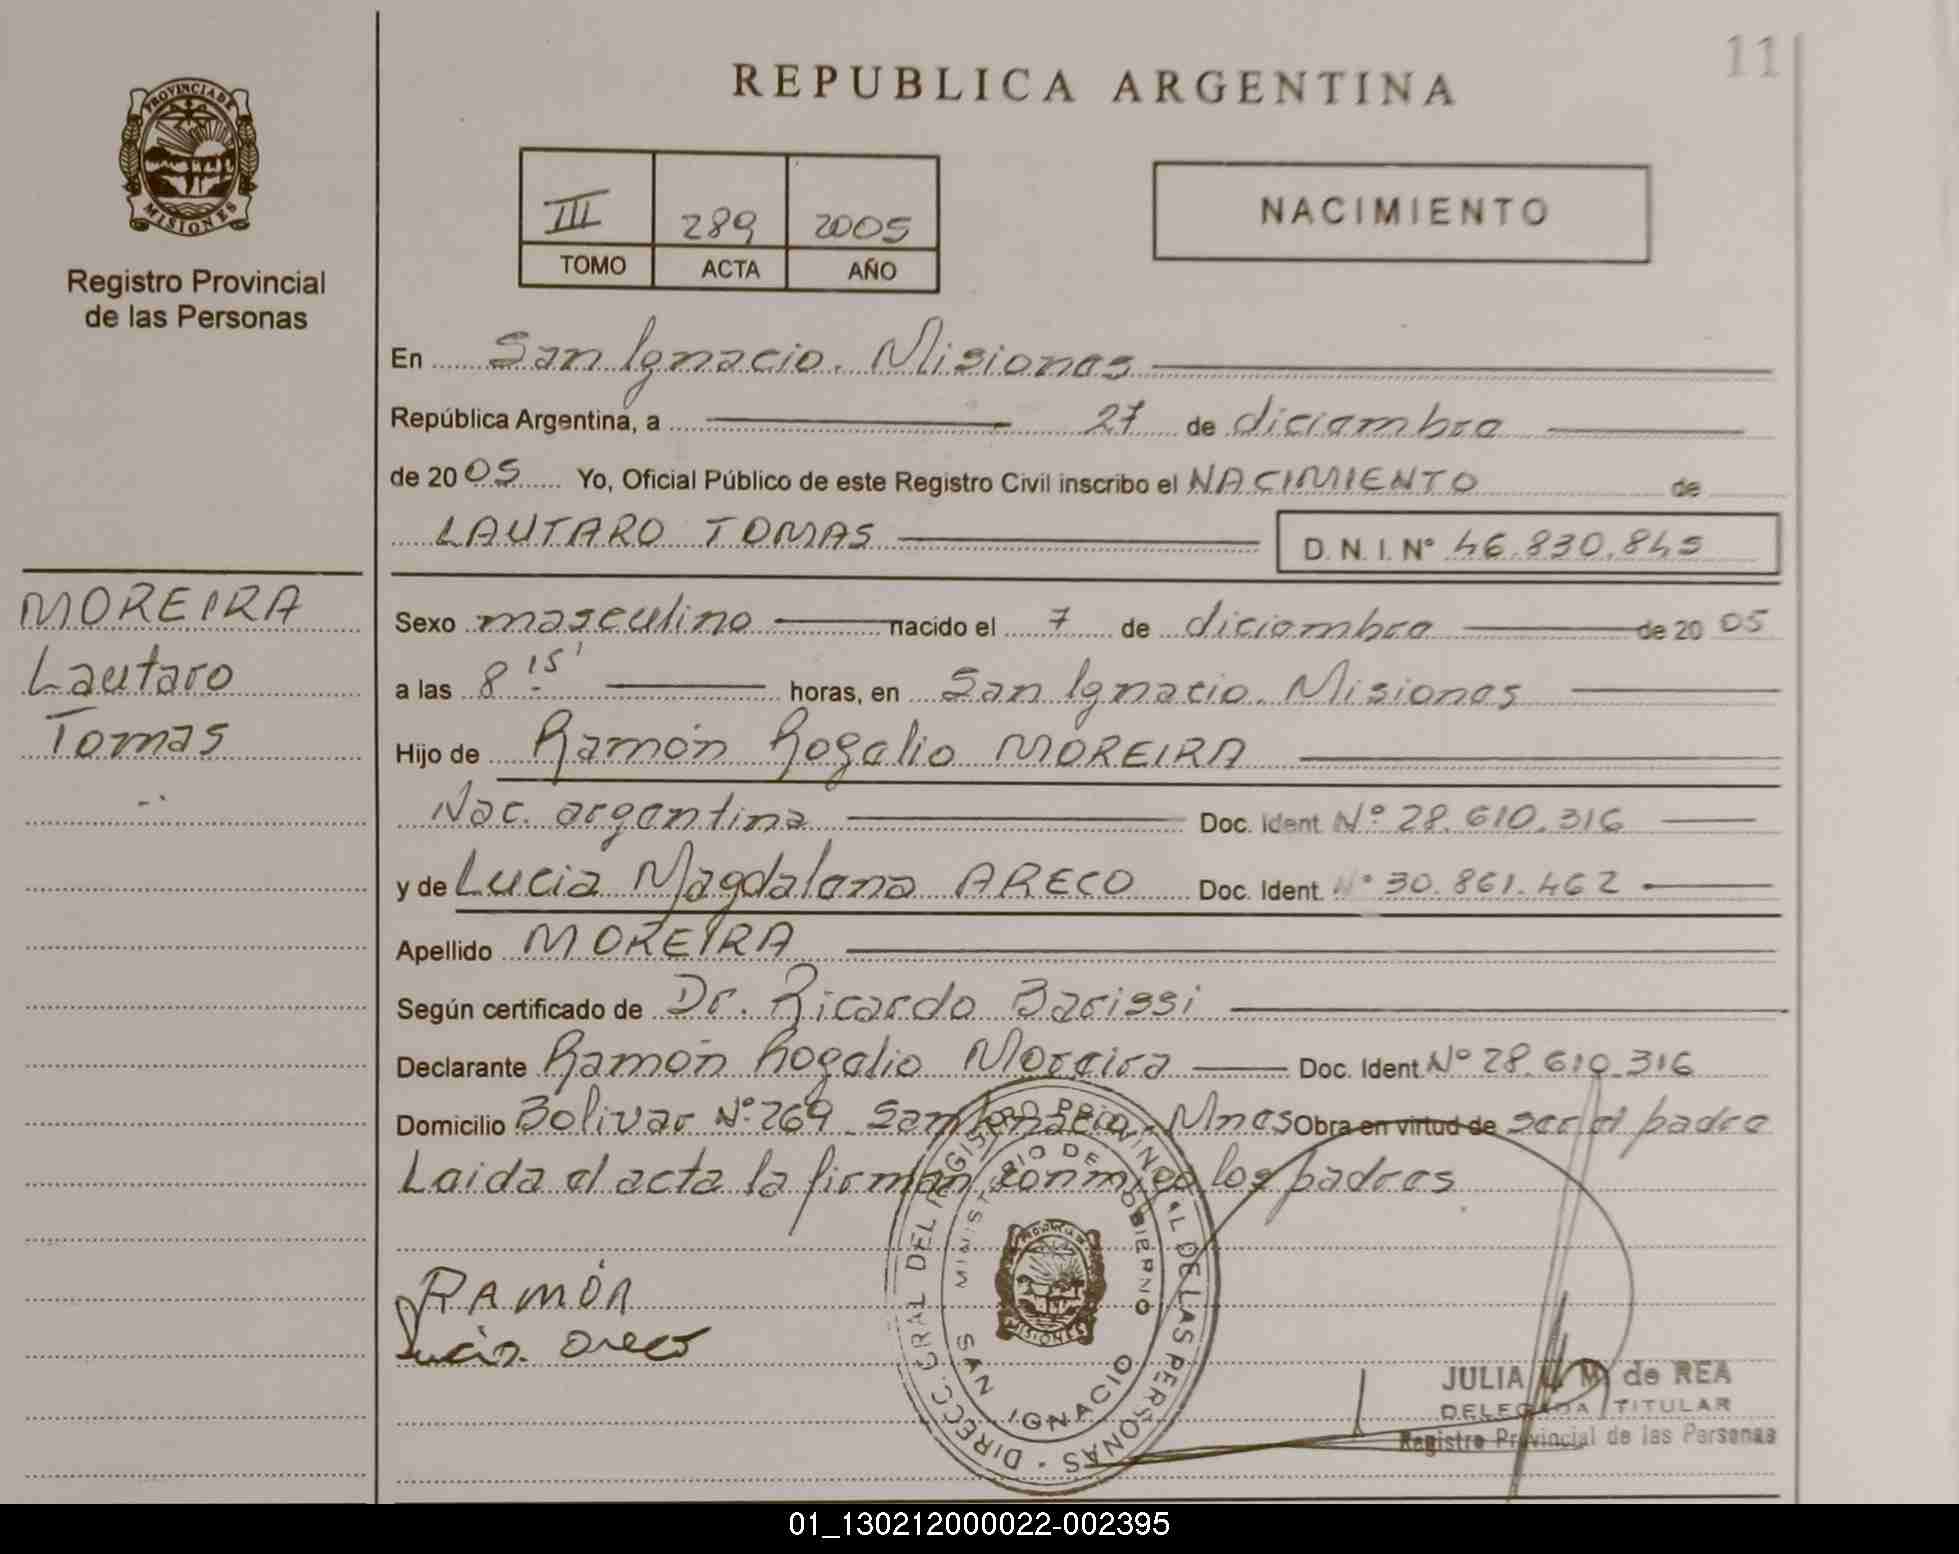 11
REPUBLICA ARGENTINA
PROVINCIA DE
MISIONES
Registro Provincial
de las Personas
III 289 2005
TOMO ACTA AÑO
NACIMIENTO
En San Ignacio. Misiones
República Argentina, a 27 de diciembre
de 2005 Yo, Oficial Público de este Registro Civil inscribo el NACIMIENTO de
LAUTARO TOMAS D. N. I. Nº 46.830.845
MOREIRA
Lautaro
Tomas
Sexo masculino nacido el 7 de diciembre de 2005
a las 8 15' horas, en San Ignacio. Misiones
Hijo de Ramón Rogelio MOREIRA
Nac. argentina Doc. Ident Nº 28.610.316
y de Lucia Magdalena ARECO Doc. Ident. Nº 30.861.462
Apellido MOREIRA
Según certificado de Dr. Ricardo Barissi
Declarante Ramón Rogelio Moreira Doc. Ident Nº 28.610.316
Domicilio Bolivar Nº 269 San Ignacio. Mnes Obra en virtud de ser el padre
Leida el acta la firman conmigo los padres
RAMÓN
Lucia Areco
DIRECC. GRAL DEL REGISTRO PROVINCIAL DE LAS PERSONAS
MINISTERIO DE GOBIERNO
MISIONES
SAN IGNACIO
JULIA M de REA
DELEGADA TITULAR
Registro Provincial de las Personas
01_130212000022-002395